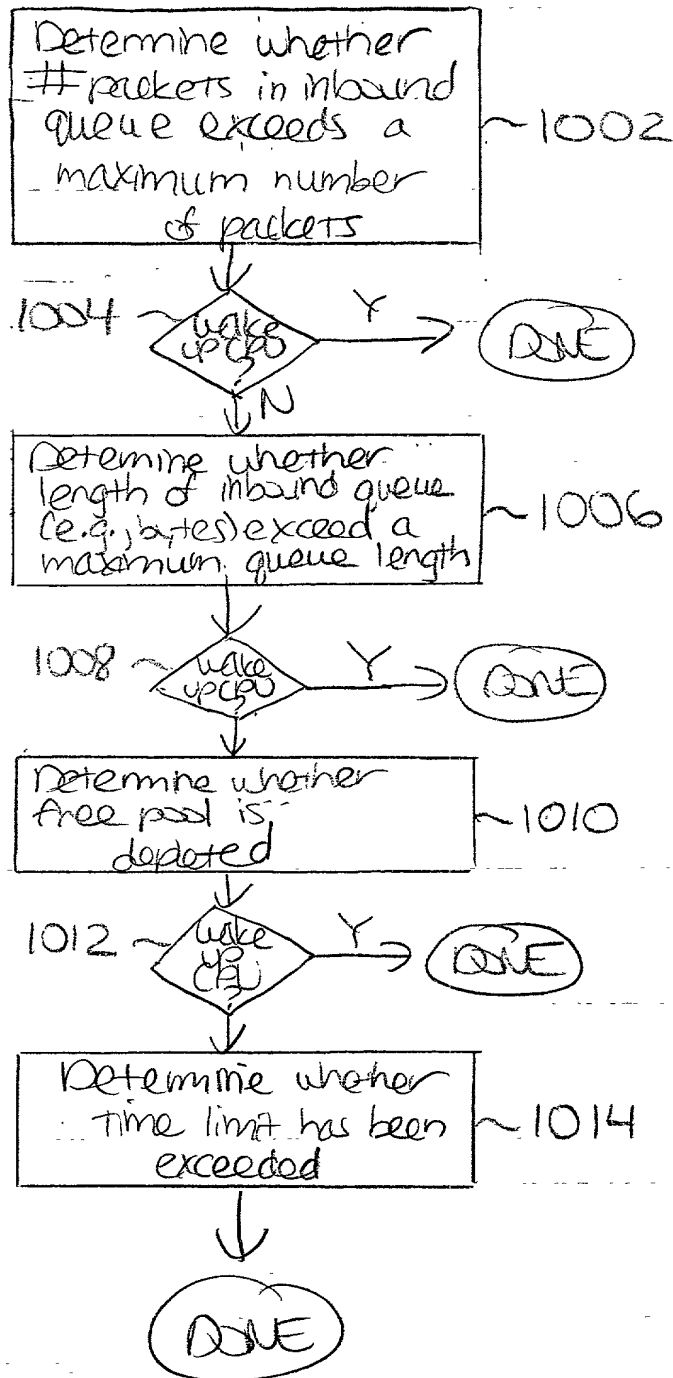 Determine whether
# packets in inbound
queue exceeds a
maximum number
of packets
~1002
1004 ~
wake
up CPU
?
Y
DONE
N
Determine whether
length of inbound queue
(e.g., bytes) exceed a
maximum queue length
~1006
1008 ~
wake
up CPU
?
Y
DONE
Determine whether
free pool is
depleted
~1010
1012 ~
wake
up
CPU
?
Y
DONE
Determine whether
time limit has been
exceeded
~1014
DONE